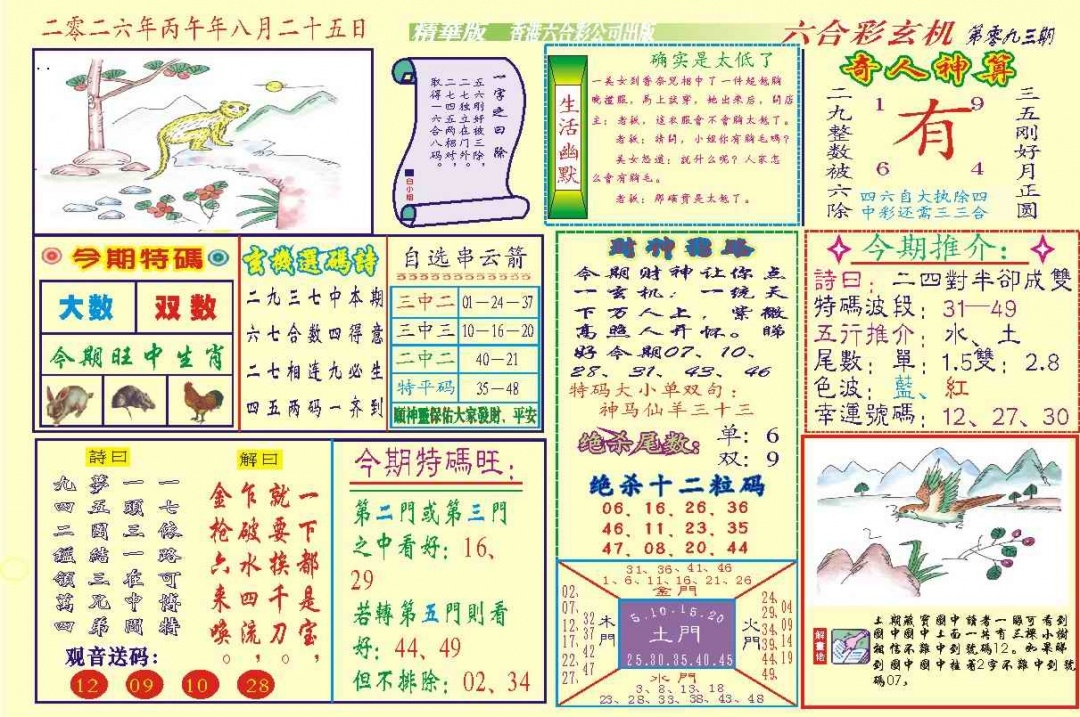 二零二六年丙午年八月二十五日
精華版 香港六合彩公司出版
六合彩玄机 第零九三期
一字之曰除
五六刚好被三除，
二七独立在门外，
二七四五两相对，
取得一六合八码。
白小姐
生活幽默
确实是太低了
一美女到香奈兒相中了一件超低胸
晚禮服，馬上試穿，她出來后，問店
主：老板，這衣服會不會胸太低了。
老板：請問，小姐你有胸毛嗎？
美女怒道：說什么呢？人家怎
么會有胸毛。
老板：那確實是太低了。
奇人神算
三五刚好月正圆
二九整数被六除
1 9
有
6 4
四六自大执除四
中彩还需三三合
今期特碼
大数 双数
今期旺中生肖
玄機選碼詩
二九三七中本期
六七合数四得意
二七相连九必生
四五两码一齐到
自选串云箭
三中二 01—24—37
三中三 10—16—20
二中二 40—21
特平码 35—48
願神靈保佑大家發財、平安
財神密路
今期财神让你点
一玄机：一统天
下万人上，紫微
高照人开怀。睇
好今期07、10、
28、31、43、46
特码大小单双句：
神马仙羊三十三
绝杀尾数：
单：6
双：9
绝杀十二粒码
06、16、26、36
46、11、23、35
47、08、20、44
今期推介：
詩曰：二四對半卻成雙
特碼波段：31—49
五行推介：水、土
尾數：單：1.5雙：2.8
色波：藍、紅
幸運號碼：12、27、30
詩曰
一七依路可博特
一頭三一在中間
夢五圍結三兄弟
九四二鎧領萬四
解曰
一下都是宝，
就要挨千刀，
乍破水四流。
金枪六来唤。
观音送码：
12 09 10 28
今期特碼旺：
第二門或第三門
之中看好：16、
29
若轉第五門則看
好：44、49
但不排除：02、34
31、36、41、46
1、6、11、16、21、26
金門
02、07、12、17、22、27、
32、37、42、47
木門
5.10.15.20
土門
25.30.35.40.45
火門
24、29、34、39、44、49
04、09、14、19
水门
3、8、13、18
23、28、33、38、43、48
解畫估
上期藏寶圖中讀者一睇可看到
圖中圖中上面一共有三棵小樹
相信不難中到號碼12。如果睇
到圖中圖中挂着2字不難中到號
碼07，